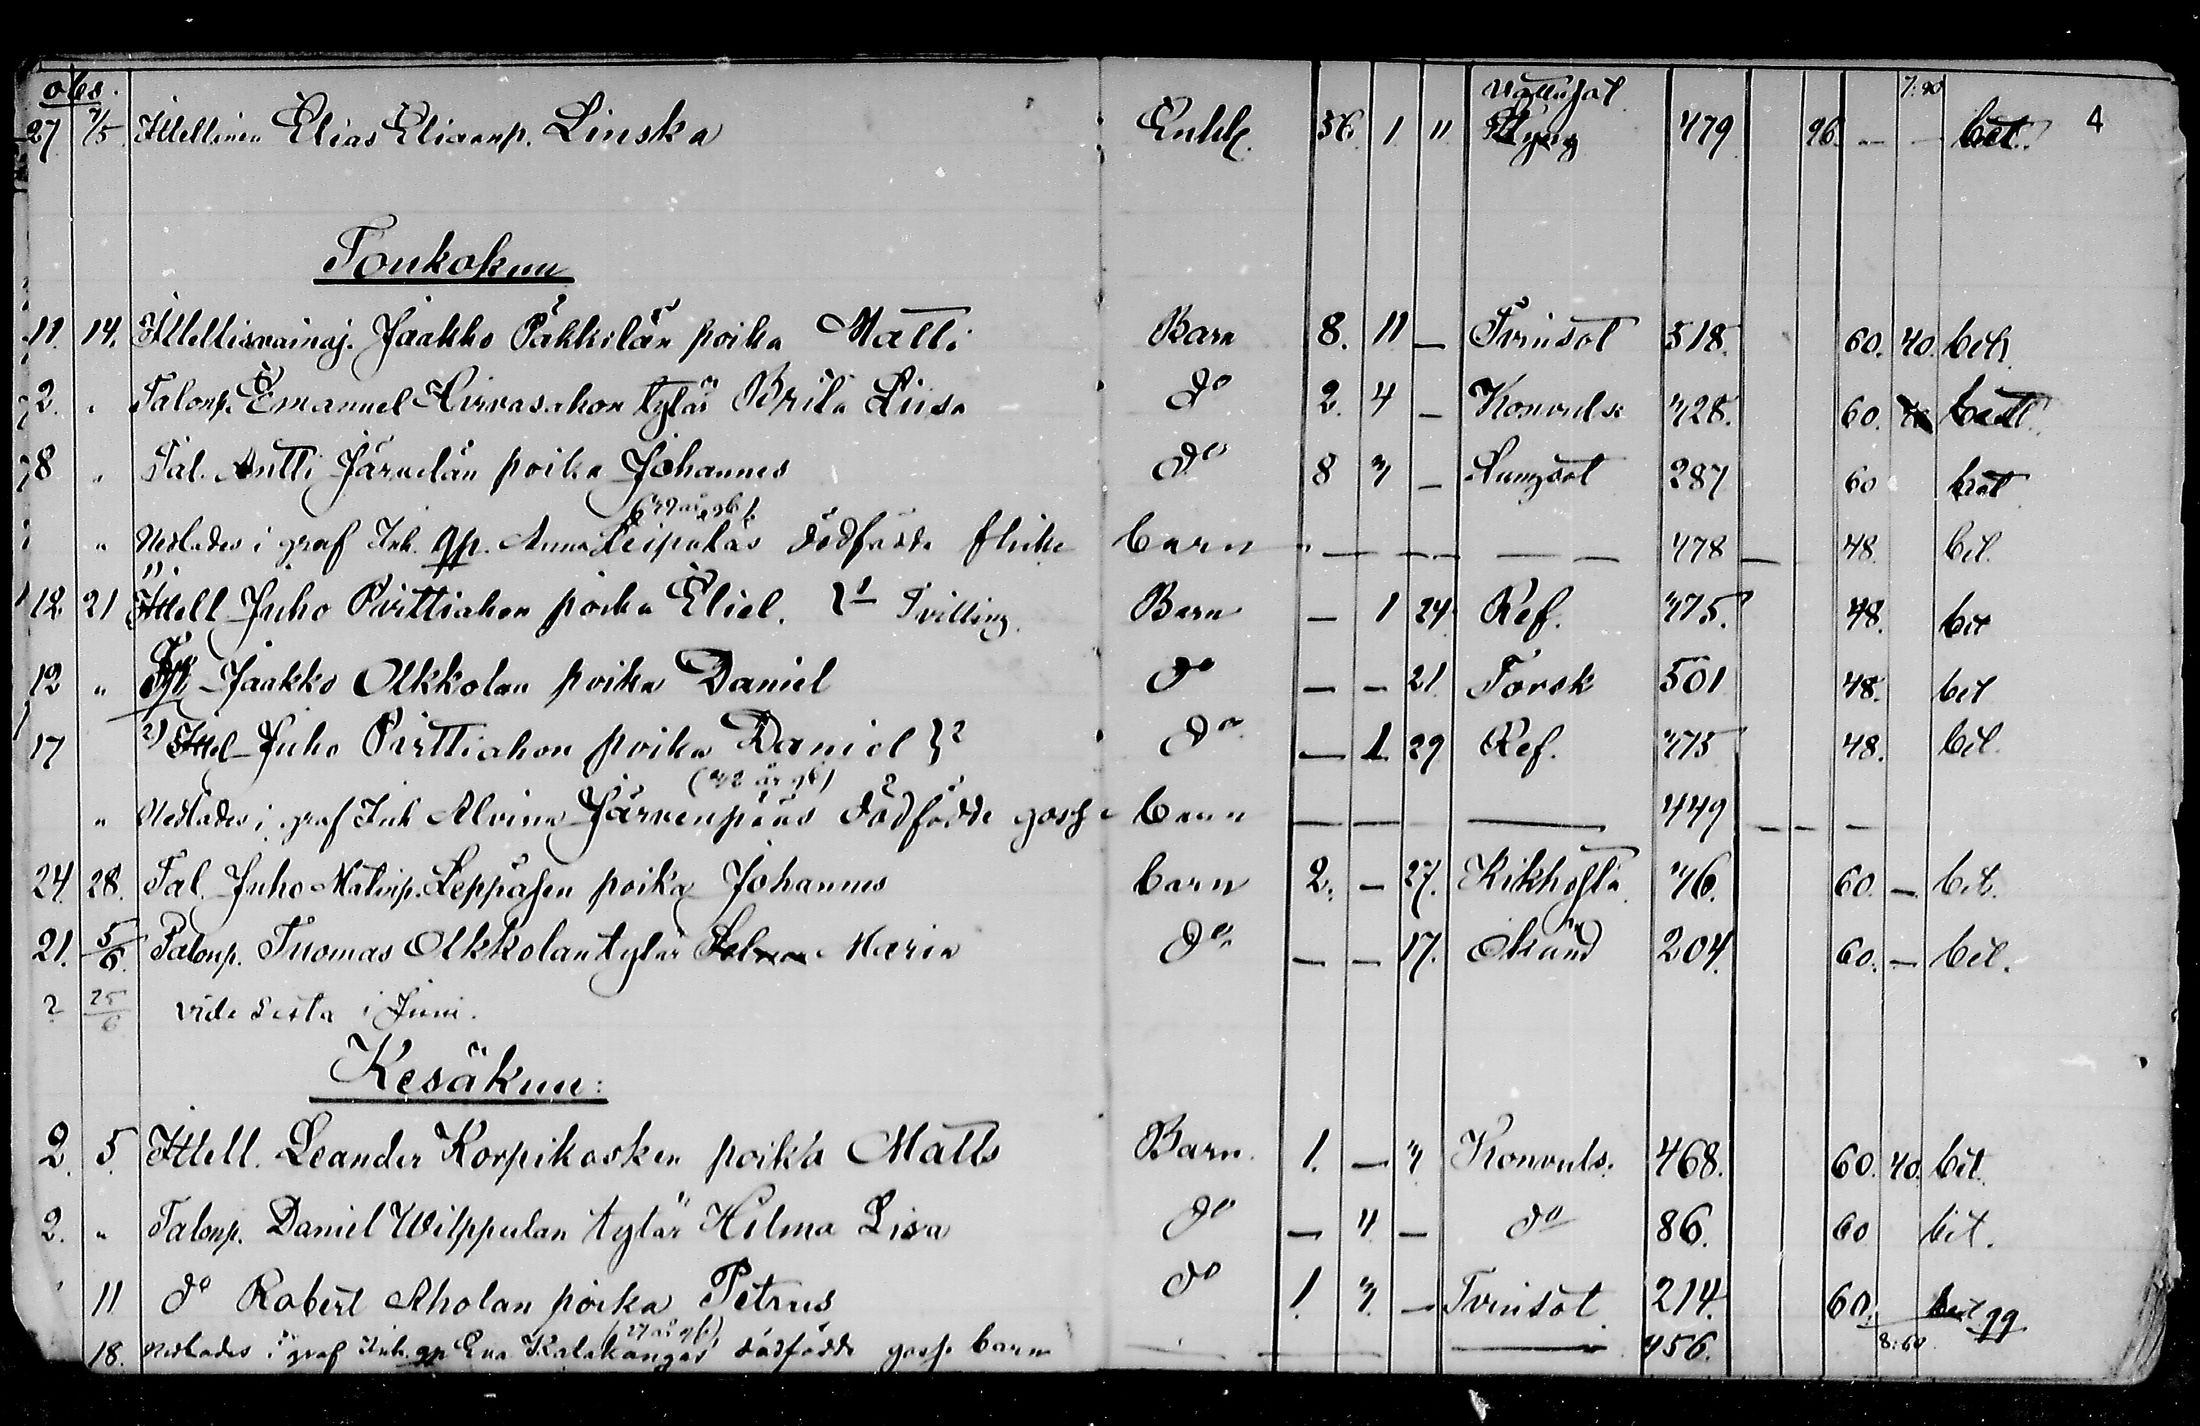 7:90
27 7/5 Elias Eliaanp. Linska Enkl. 56. 1 11 479 96 — — bet. 4
Toukokuu
11. 14. Jaakko Pakkilän poika Matti Barn 8. 11 — Tvinsot 518. 60. 40. bet.
2. " Talonp. Emanuel Hirvasahon tytär Brita Liisa do 2. 4 — Konvuls. 428. 60.
8 " Tal. Antti Järvelän poika Johannes do 8 — Lungsot 287 60 bet
" Nedlades i graf Inh. qp. Anna Leipäläs dödfödde flicke barn — — — — 478 — 48 bet.
12. 21 Itsell Juho Pirttiahon poika Eliel. Tvilling. Barn — 1 24 Ref. 475. 48. bet
12 " Jaakko Olkkolan poika Daniel do — — 21 Torsk 501 48. bet
17 2) Itsel Juho Pirttiahon poika Daniel }2 do — 1 29 Ref. 475 48. bet.
(42 år gl)
" Nedlades i graf Inh Alvina Järvenpääs dödfödde gosse barn — — — 449 — — —
24. 28. Tal. Juho Matinp. Leppäsen poika Johannes barn 2. — 27. Kikhosta 46. 60 — bet.
21. 5/6. Talonp. Tuomas Olkkolan tytär Maria do — — 17. Okänd 204. 60. — bet.
? 25/6 vide sista i Juni.
Kesäkuu:
2. 5. Itsell. Leander Korpikosken poika Matts Barn. 1. — Konvuls. 468. 60. 40. bet.
2. " Talonp. Daniel Wilppulan tytär Hilma Lisa do — — do 86. 60 bet.
11 do Robert Aholan poika Petrus do 1. — Tvinsot 214. 60.
(27 år gl)
18. Nedlades i graf Inh. qp Eva Kalakangas dödfödde gosse barn — — — 456. 8:60